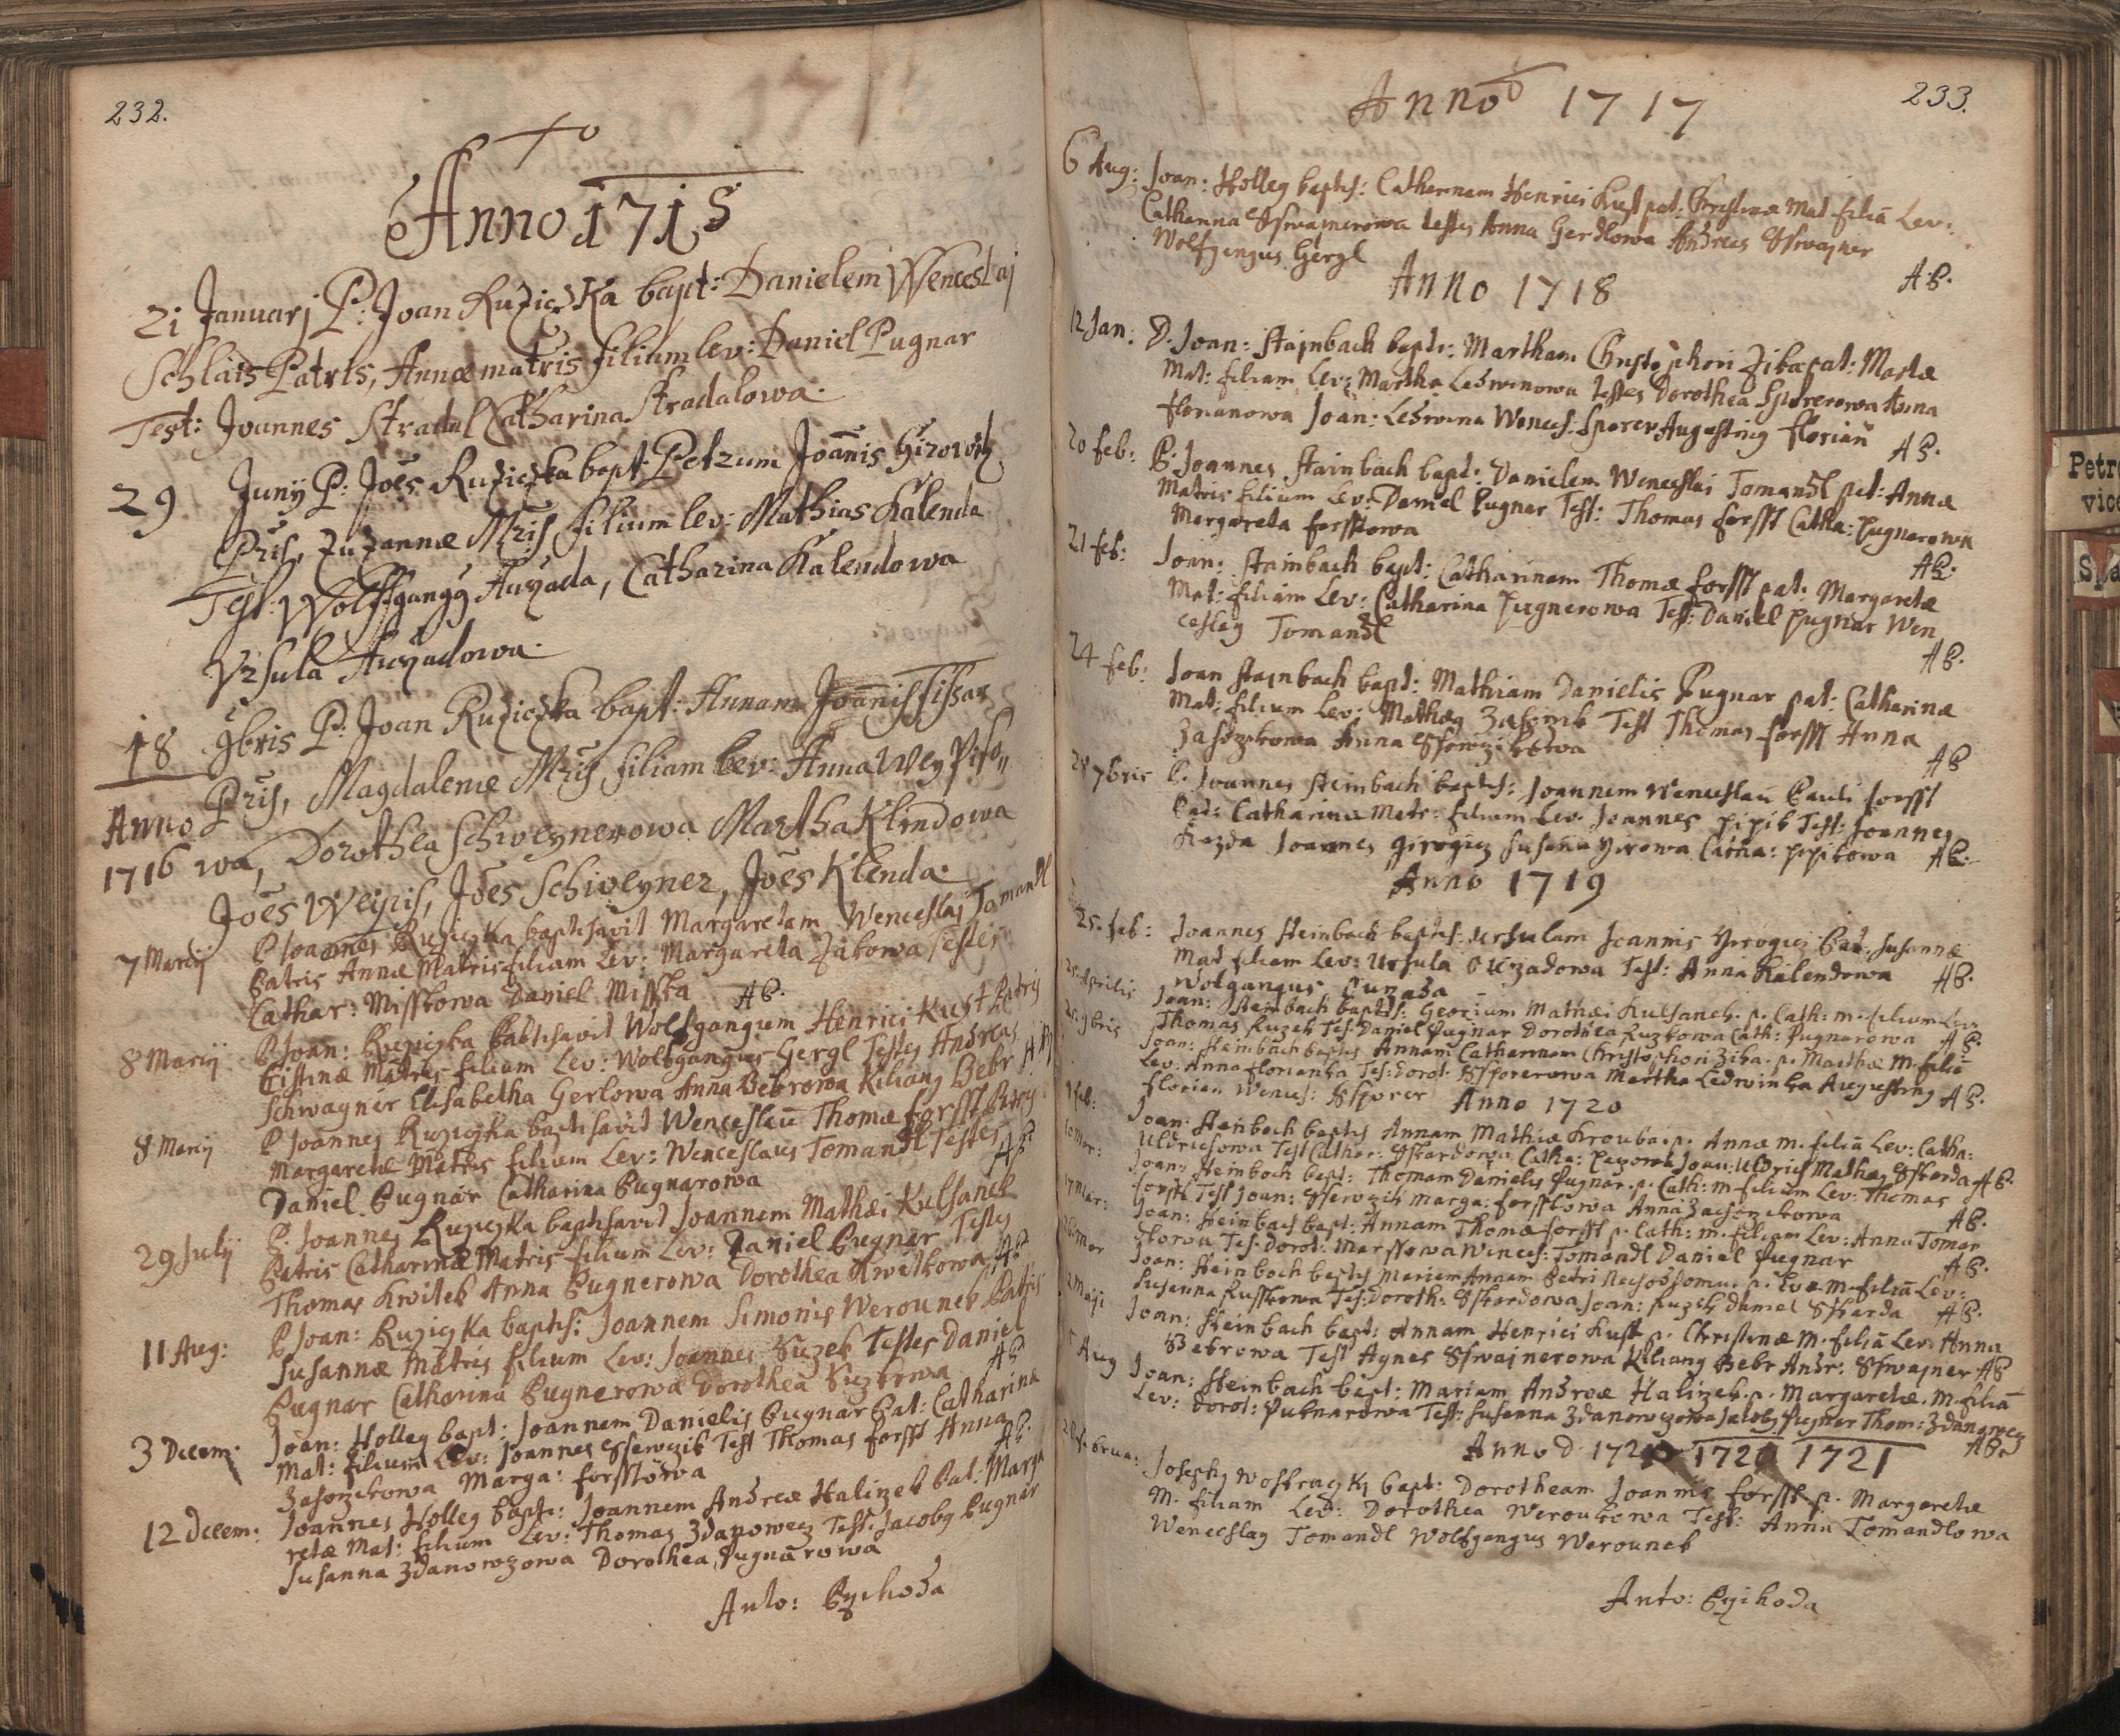 232.
Anno 1715
21 Januarj P: Joan Ruziczka bapt: Danielem Wenceslaj
Schlais Patris, Annæ matris filium lev: Daniel Pugnar
Test: Joannes Stradal Catharina Stradalowa.
29 Junÿ P: Joēs Ruziczka bapt: Petrum Joānis Girowitz
Pris, Zuzannæ Mris filium lev: Mathias Kalenda
Test: Wolffgang9 Auzada, Catharina Kalendowa
Vrsula Auzadowa.
18 9bris P: Joan Ruziczka bapt: Annam Joānis Tissar
Pris, Magdalenæ Mris filiam lev: Anna Weypiso„
Anno
1716 wa, Dorothea Schweynerowa Martha Klendowa
Joēs Weypis, Joēs Schweyner, Joēs Klenda.
7 Marcÿ P Joannes Ruziczka baptisavit Margaretam Wenceslaj Tomandl
Patris Annæ Matris filiam Lev: Margareta Zibowa Testes
Cathar: Misskowa Daniel Misska AP.
8 Marcÿ P Joan: Ruziczka Babtisavit Wolfgangum Henrici Kust Patris
Cristinæ Matris filium Lev: Wolfgangus Gergl Testes Andreas
Schwagner Elisabetha Gerlowa Anna Bebrowa Kilian9 Bebr AP
8 Marcÿ P Joannes Ruziczka baptisavit Wenceslaū Thomæ Forsst Patris
Margaretæ Matris filium Lev: Wenceslaus Tomandl Testes
Daniel Pugnar Catharina Pugnarowa AP
29 Julÿ P. Joannes Ruziczka baptisavit Joannem Mathæi Kulsanek
Patris Catharinæ Matris filium Lev: Daniel Pugner Testes
Thomas Kwitek Anna Pugnerowa Dorothea Kwitkowa AP
11 Aug: P Joan: Ruziczka baptis: Joannem Simonis Werounek Patris
Susannæ Matris filium Lev: Joannes Ruzek Testes Daniel
Pugnar Catharina Pugnerowa Dorothea Ruzkowa AP
3 Decem: Joan: Holleg bapt: Joannem Danielis Pugnar Pat: Catharinæ
Mat: filium Lev: Joannes Ssewczik Test Thomas Forsst Anna
Zasomkowa Marga: Forsstowa AP.
12 Decem: Joannes Holleg bapt: Joannem Andreæ Halizek Pat: Marga
retæ Mat: filium Lev: Thomas Zdanowecz Test: Jacob9 Pugnar
Susanna Zdanowzowa Dorothea Pugnarowa
Anto: Pychoda
233.
Anno 1717
6 Aug: Joan: Holleg baptis: Catharinam Henrici Kust pat: Christinæ Mat filiā Lev:
Catharina Sswajnerowa testes Anna Gerdlowa Andreas Sswajner
Wolfgangus Gergl AP.
Anno 1718
12 Jan: D. Joan: Stajnbach bapti: Martham Christophori Ziba pat: Martæ
Mat: filiam Lev: Martha Ledwinowa testes Dorothea Sporerowa Anna
Florianowa Joan: Ledwina Wences: Sporer Augustin9 Florian AP.
20 Feb: P. Joannes Stainbach bapt: Danielem Wenceslai Tomandl pat: Annæ
Matris filium Lev: Daniel Pugner Test: Thomas Forsst Catha: Pugnerowa
Margareta Forsstowa AP.
21 Feb: Joan: Stainbach bapt: Catharinam Thomæ Forsst pat: Margaretæ
Mat: filiam Lev: Catharina Pugnerowa Test: Daniel Pugnar Wen
cesla9 Tomandl AP.
24 Feb: Joan Stajnbach bapt: Mathiam Danielis Pugnar pat: Catharinæ
Mat: filium Lev: Mathæ9 Zasomk Test Thomas Forsst Anna
Zasomkowa Anna Ssewczikowa AP
28 7bris P. Joannes Steinbach baptis: Joannem Wenceslaū Pauli Forsst
Pat: Catharinæ Matr: filium Lev: Joannes Pipik Test: Joannes
Kozda Joannes Girogicz Susana Girowa Catha: Pipikowa AP.
Anno 1719
25. Feb: Joannes Steinbach baptis: Ursulam Joannis Girogicz Pat: Susannæ
Mat filiam Lev: Ursula Auzadowa Test: Anna Kalendowa
Wolgangus Auzada AP.
25. Aprilis Joan: Steinbach baptis: Georium Mathæi Kulsanek. p. Cath: m. filium Lev:
Thomas Ruzek Tes: Daniel Pugnar Dorothea Ruzkowa Cath: Pugnarowa AP.
25. 9bris Joan: Steinbach baptis Annam Catharinam Christophori Ziba. p. Marthæ M. filiā
Lev: Anna Florianka Tes: Dorot: Ssporerowa Martha Ledwinka Augustin9
Florian Wences: Ssporer AP.
Anno 1720
Feb: Joan: Steinbach baptis Annam Mathiæ Krouba. p. Annæ m. filiā Lev: Catha:
Uldrichowa Test Cathar: Sskardowa Catha: Joan: Uldrich Mathæ9 Sskarda AP.
10 Mar: Joan: Steinbach bapt: Thomam Danielis Pugnar. p. Cath: m filium Lev: Thomas
Forsst Test Joan: Ssewczik Marga: Forsstowa Anna Zasomkowa AP.
17 Mar: Joan: Steinbach bapt: Annam Thomæ Forsst p. Cath: m. filiam Lev: Anna Toman
dlowa Tes: Dorot: Marssowa Wences: Tomandl Daniel Pugnar AP.
Mar Joan: Steinbach baptis Mariam Annam Petri p. Evæ m. filiā Lev:
Susanna Russkowa Tes: Doroth: Sskardowa Joan: Ruzek Daniel Sskarda AP.
Maji Joan: Steinbach bapt: Annam Henrici Kust p. Christinæ M. filiā Lev: Anna
Bebrowa Test Agnes Sswajnerowa Kilian9 Bebr Andr: Sswajner AP
Aug Joan: Steinbach bapt: Mariam Andreæ Halizek. p. Margaretæ. M. filiā
Lev: Dorot: Puknarowa Test: Susanna Zdanowczowa Jacob9 Pugner Thom: Zdanowecz AP.
Anno D 1720 1720 1721
Februa: Joseph9 Woskraczky bapt: Dorotheam Joannis Forsst p. Margaretæ
M. filiam Lev: Dorothea Weroukowa Test: Anna Tomandlowa
Wencesla9 Tomandl Wolfgangus Werounek
Anto: Pychoda
Petr
vice
Spa